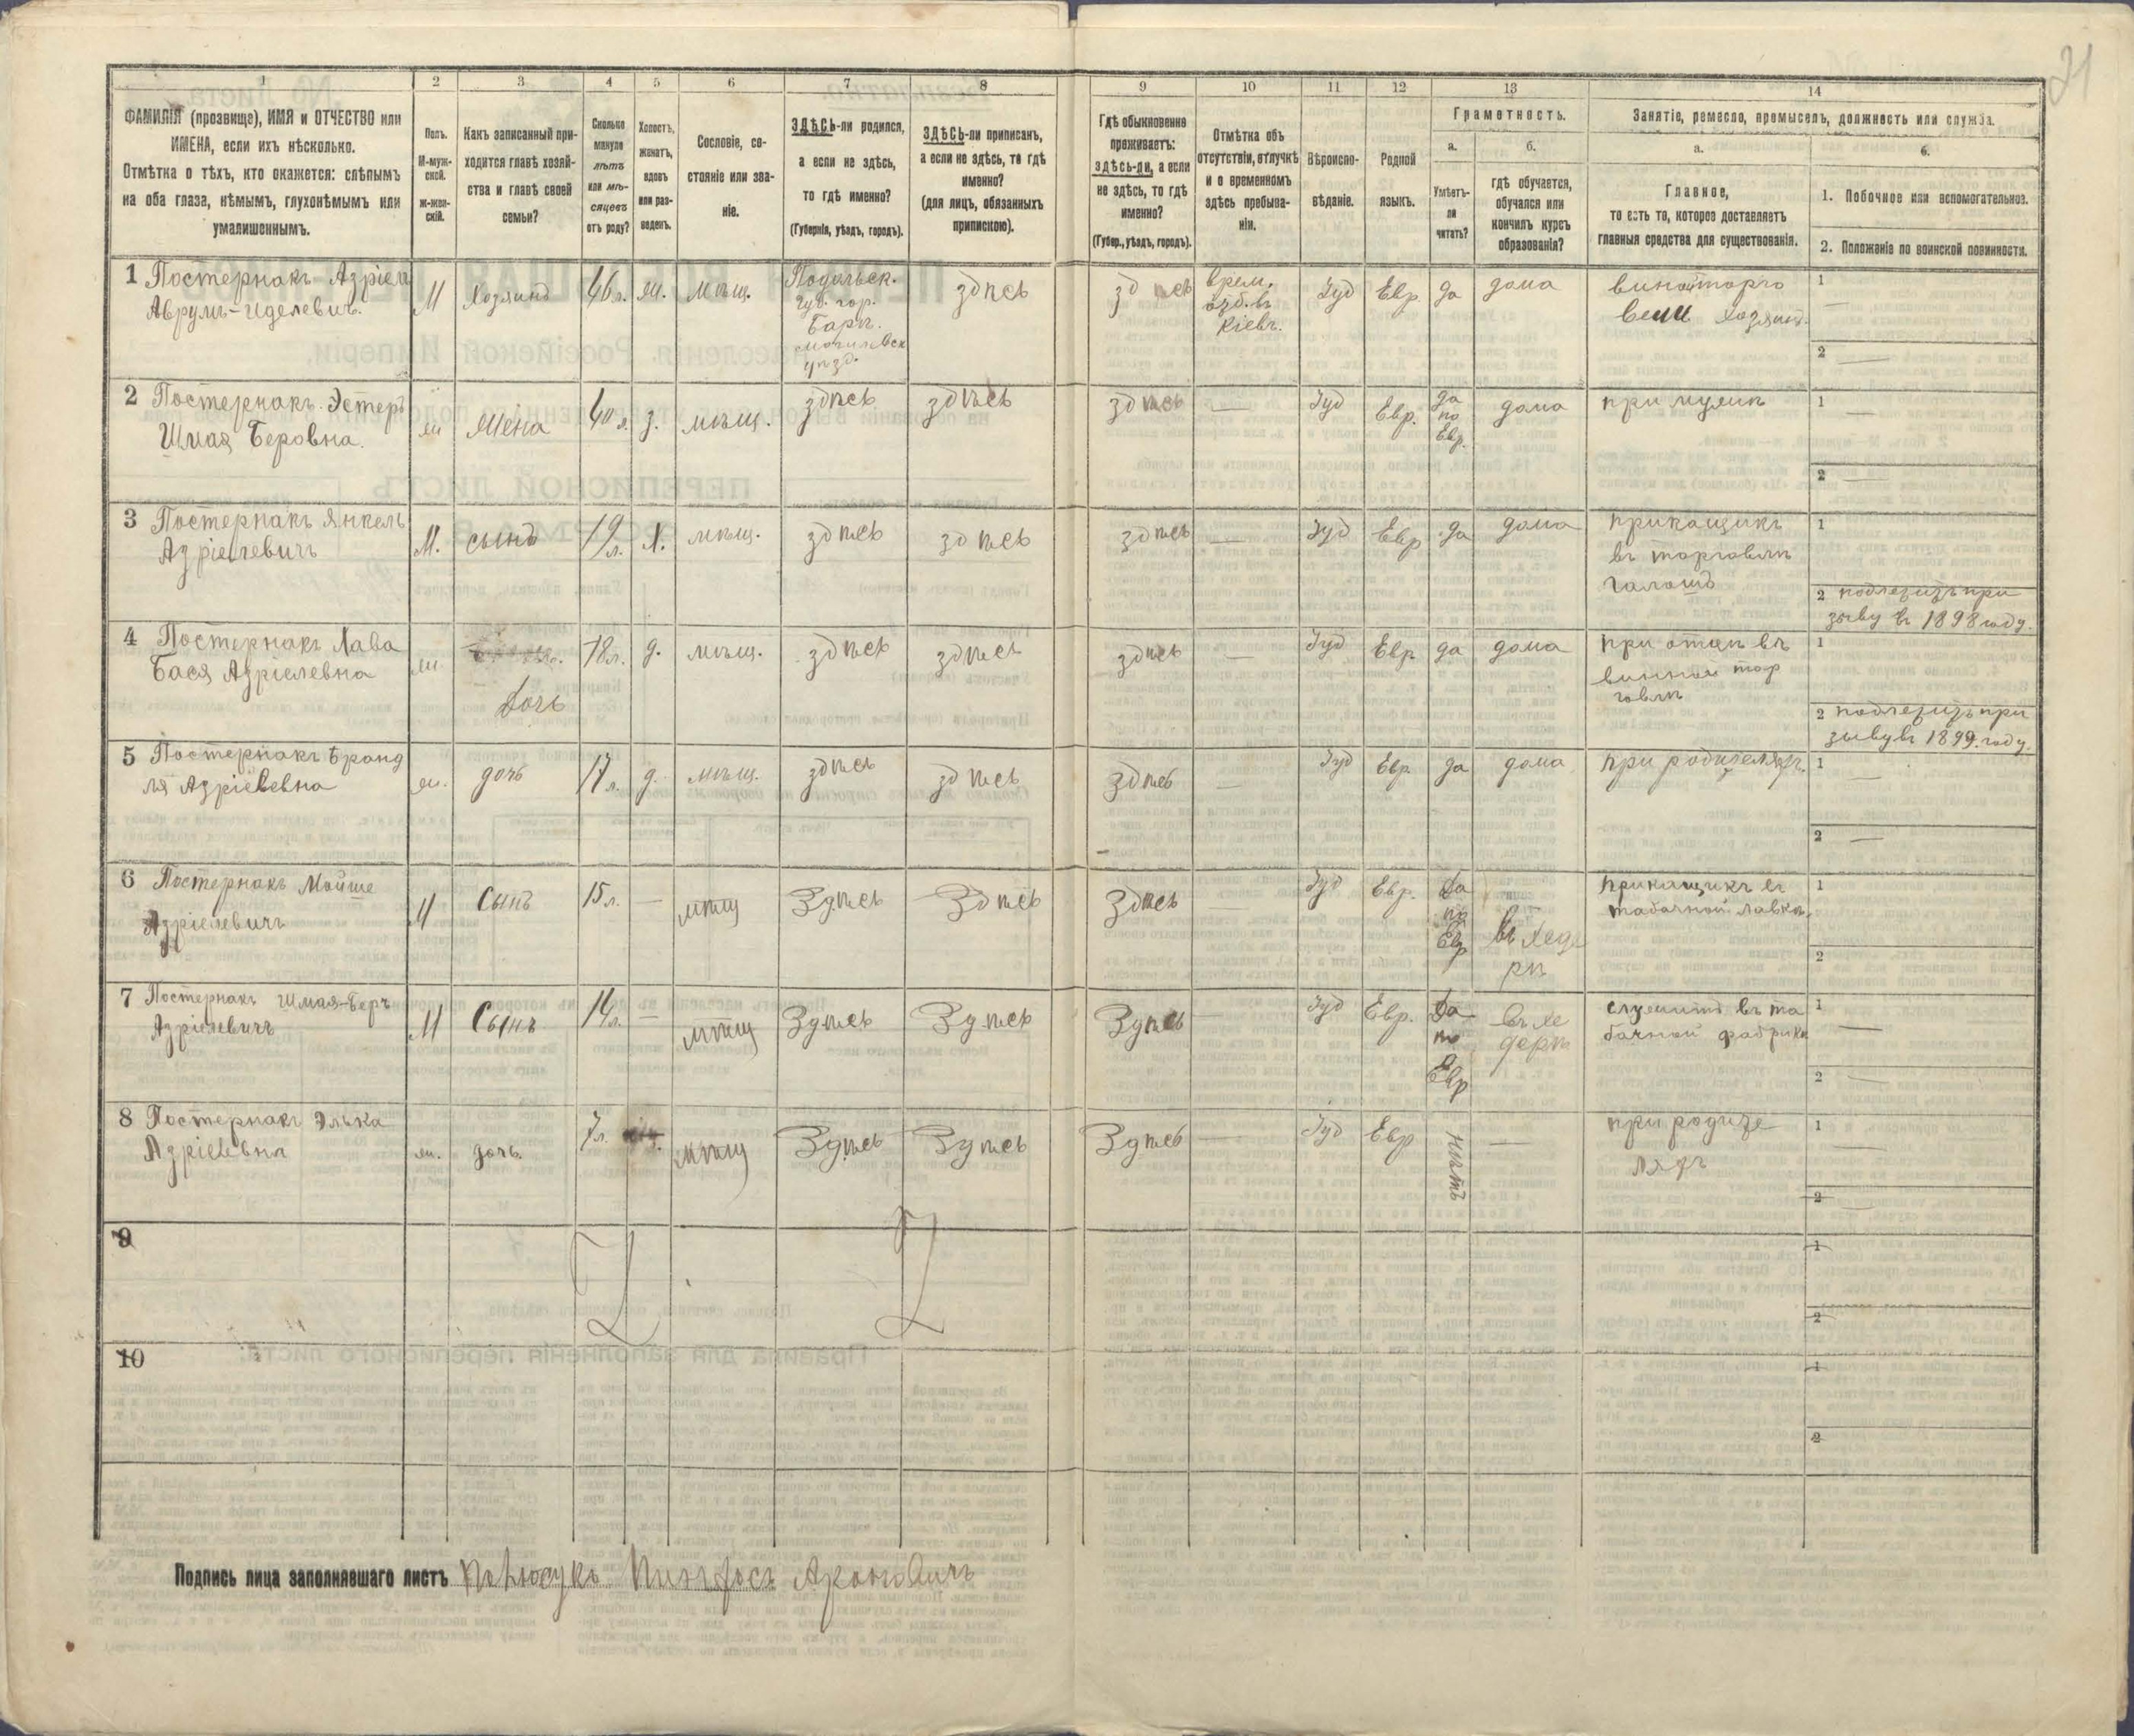 21
1 2 3 4 5 6 7 8 9 10 11 12 13 14
ФАМИЛІЯ (прозвище), ИМЯ и ОТЧЕСТВО или
ИМЕНА, если ихъ нѣсколько.
Отмѣтка о тѣхъ, кто окажется: слѣпымъ
на оба глаза, нѣмымъ, глухонѣмымъ или
умалишеннымъ.
Полъ.
М-муж-
ской.
ж-жен-
скій.
Какъ записанный при-
ходится главѣ хозяй-
ства и главѣ своей
семьи?
Сколько
минуло
лѣтъ
или мѣ-
сяцевъ
отъ роду?
Холостъ,
женатъ,
вдовъ
или раз-
веденъ.
Сословіе, со-
стояніе или зва-
ніе.
ЗДѢСЬ-ли родился,
а если не здѣсь,
то гдѣ именно?
(Губернія, уѣздъ, городъ).
ЗДѢСЬ-ли приписанъ,
а если не здѣсь, то гдѣ
именно?
(для лицъ, обязанныхъ
припискою).
Гдѣ обыкновенно
проживаетъ:
здѣсь-ли, а если
не здѣсь, то гдѣ
именно?
(Губер., уѣздъ, городъ).
Отмѣтка объ
отсутствіи, отлучкѣ
и о временномъ
здѣсь пребыва-
ніи.
Вѣроиспо-
вѣданіе.
Родной
языкъ.
Грамотность.
а.
Умѣетъ-
ли
читать?
б.
гдѣ обучается,
обучался или
кончилъ курсъ
образованія?
Занятіе, ремесло, промыселъ, должность или служба.
а.
Главное,
то есть то, которое доставляетъ
главныя средства для существованія.
б.
1. Побочное или вспомогательное.
2. Положеніе по воинской повинности.
1 Постернакъ Азріел
Аврумъ-Иделевичъ.
М
Хозяинъ
46 л.
ж.
мѣщ.
Подольск.
Губ. гор.
Баръ.
Могилевск
уѣзд.
здѣсь
здѣсь
врем.
въ
Кіевъ.
Іуд
Евр
да
дома
виноторго
вецъ хозяинъ.
1 —
2 —
2 Постернакъ Эстеръ
Шмая Беровна.
ж
Жена
40 л.
з.
мѣщ.
здѣсь
здѣсь
здѣсь
—
Іуд
Евр.
да
по
Евр.
дома
при мужѣ
1 —
2 —
3 Постернакъ Янкель
Азріелевичъ
М.
сынъ
19 л.
Х.
мѣщ.
здѣсь
здѣсь
здѣсь
—
Іуд
Евр
да
дома
прикащикъ
въ торговлѣ
галошъ
1
2 подлежитъ при
зыву въ 1898 году.
4 Постернакъ Хава
Бася Азріелевна
ж
Дочь
18 л.
д.
мѣщ.
здѣсь
здѣсь
здѣсь
—
Іуд
Евр
да
дома
при отцѣ въ
винной тор
говлѣ
1
2 подлежитъ при
зыву въ 1899. году.
5 Постернакъ Бранд
ля Азріелевна
ж.
дочь
17 л.
д.
мѣщ.
здѣсь
здѣсь
здѣсь
—
Іуд
Евр.
да
дома
при родителяхъ
1 —
2 —
6 Постернакъ Мойше
Азріелевичъ
М
Сынъ
15 л.
—
мѣщ
Здѣсь
Здѣсь
Здѣсь
—
Іуд
Евр.
Да
по
Евр
въ хеде
рѣ
прикащикъ въ
табачной лавкѣ.
1
2
7 Постернакъ Шмая-Беръ
Азріелевичъ
М
Сынъ
14 л.
—
мѣщ
Здѣсь
Здѣсь
Здѣсь
Іуд
Евр.
Да
по
Евр
въ хе
дерѣ
служитъ въ та
бачной фабрике
1 —
2 —
8 Постернакъ Элька
Азріелевна
ж.
дочь.
7 л.
мѣщ
Здѣсь
Здѣсь
Здѣсь
—
Іуд
Евр
нѣтъ
—
при родите
ляхъ
1 —
2 —
9
1
2
10
1
2
Подпись лица заполнявшаго листъ Пинхосъ Ароновичъ